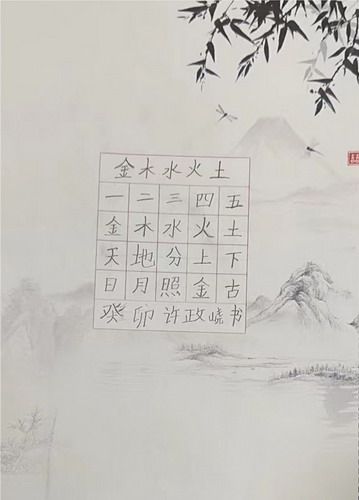 金木水火土
一二三四五
金木水火土
天地分上下
日月照金古
癸卯许政峣书